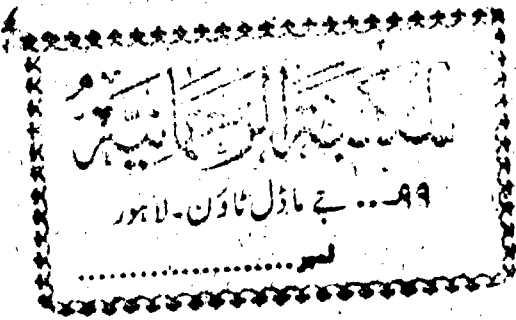 المکتبۃ الرحمانیۃ
۹۹... جے ماڈل ٹاؤن ۔ لاہور
نمبر ......................